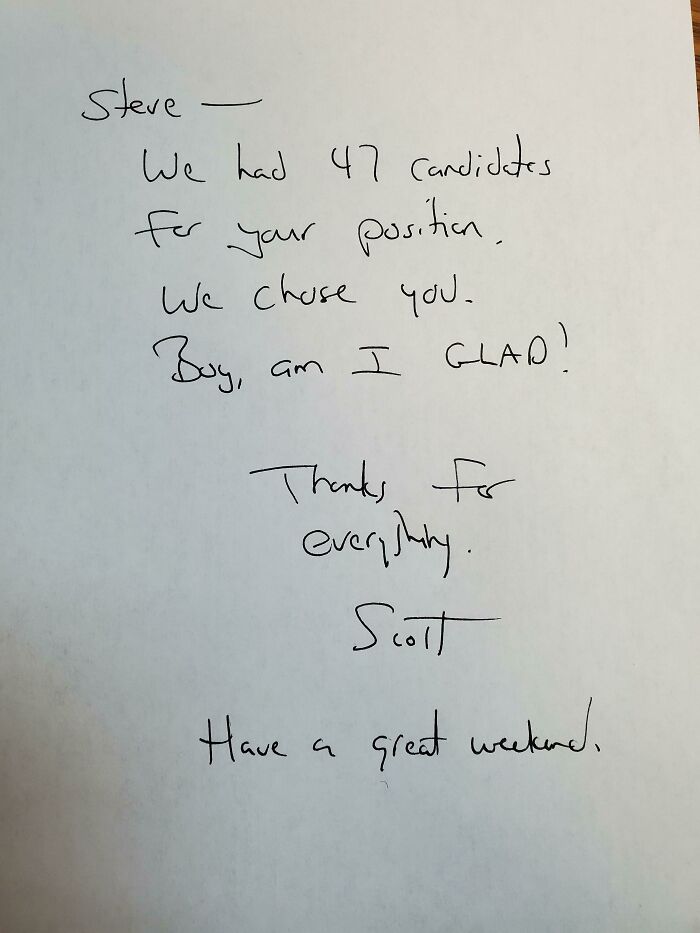 Steve —
We had 47 candidates
for your position.
We chose you.
Boy, am I GLAD!
Thanks for
everything.
Scott
Have a great weekend.